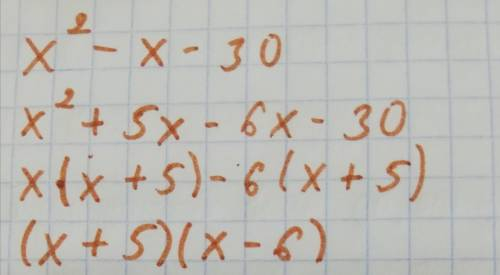 x² - x - 30
x² + 5x - 6x - 30
x(x + 5) - 6(x + 5)
(x + 5)(x - 6)